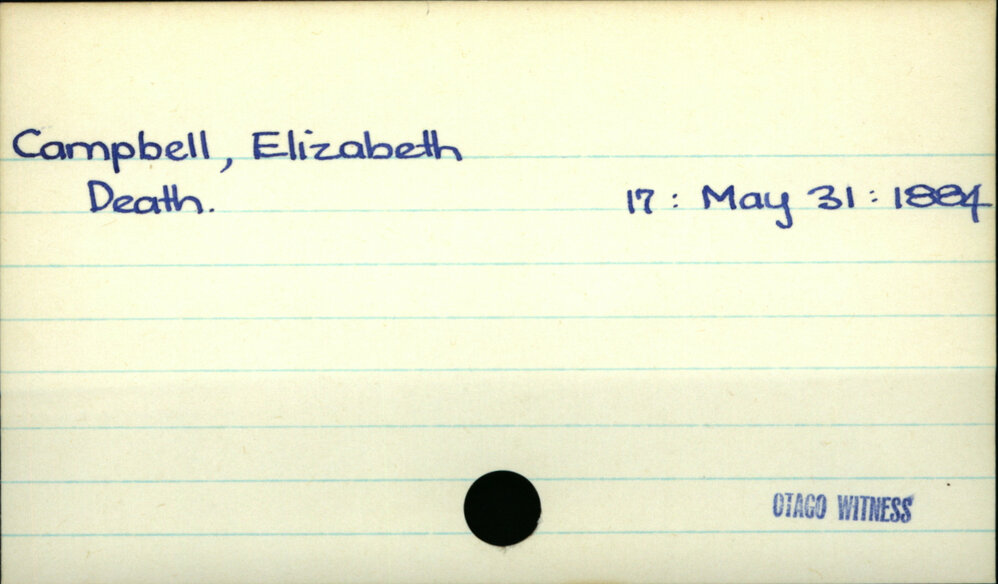 Campbell, Elizabeth
Death. 17 : May 31 : 1884
OTAGO WITNESS